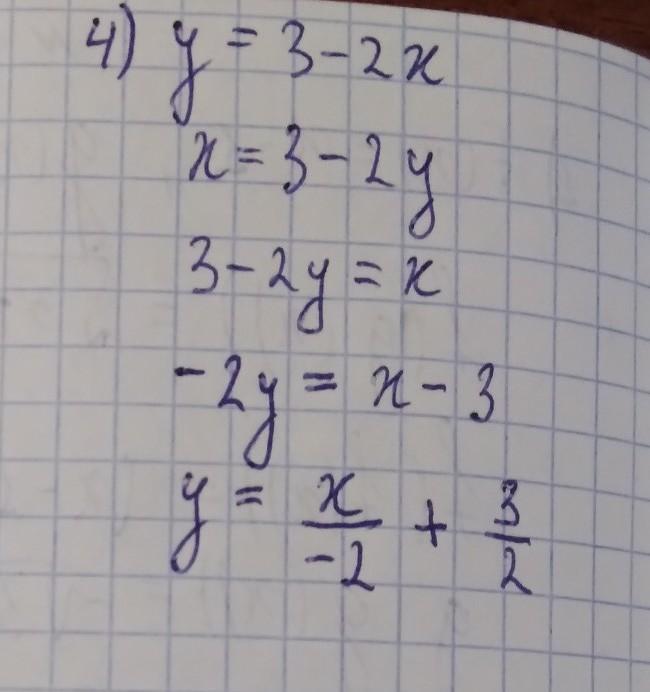 4) y = 3 - 2x
x = 3 - 2y
3 - 2y = x
-2y = x - 3
y = x/-2 + 3/2